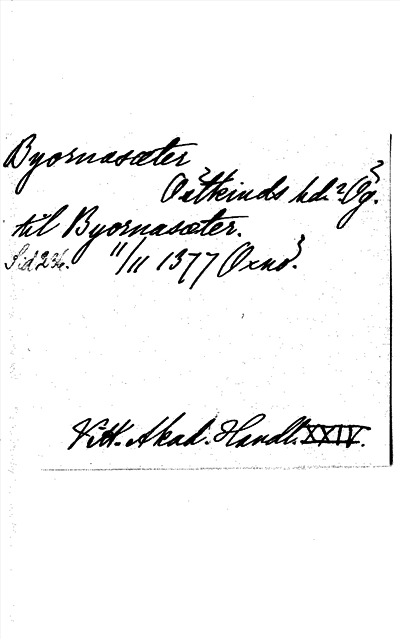 Byornasæter
Östkinds hd? Ög.
til Byornasæter.
Sid 236. 11/11 1377 Oxnö.
Vitt. Akad. Handl. XXIV.